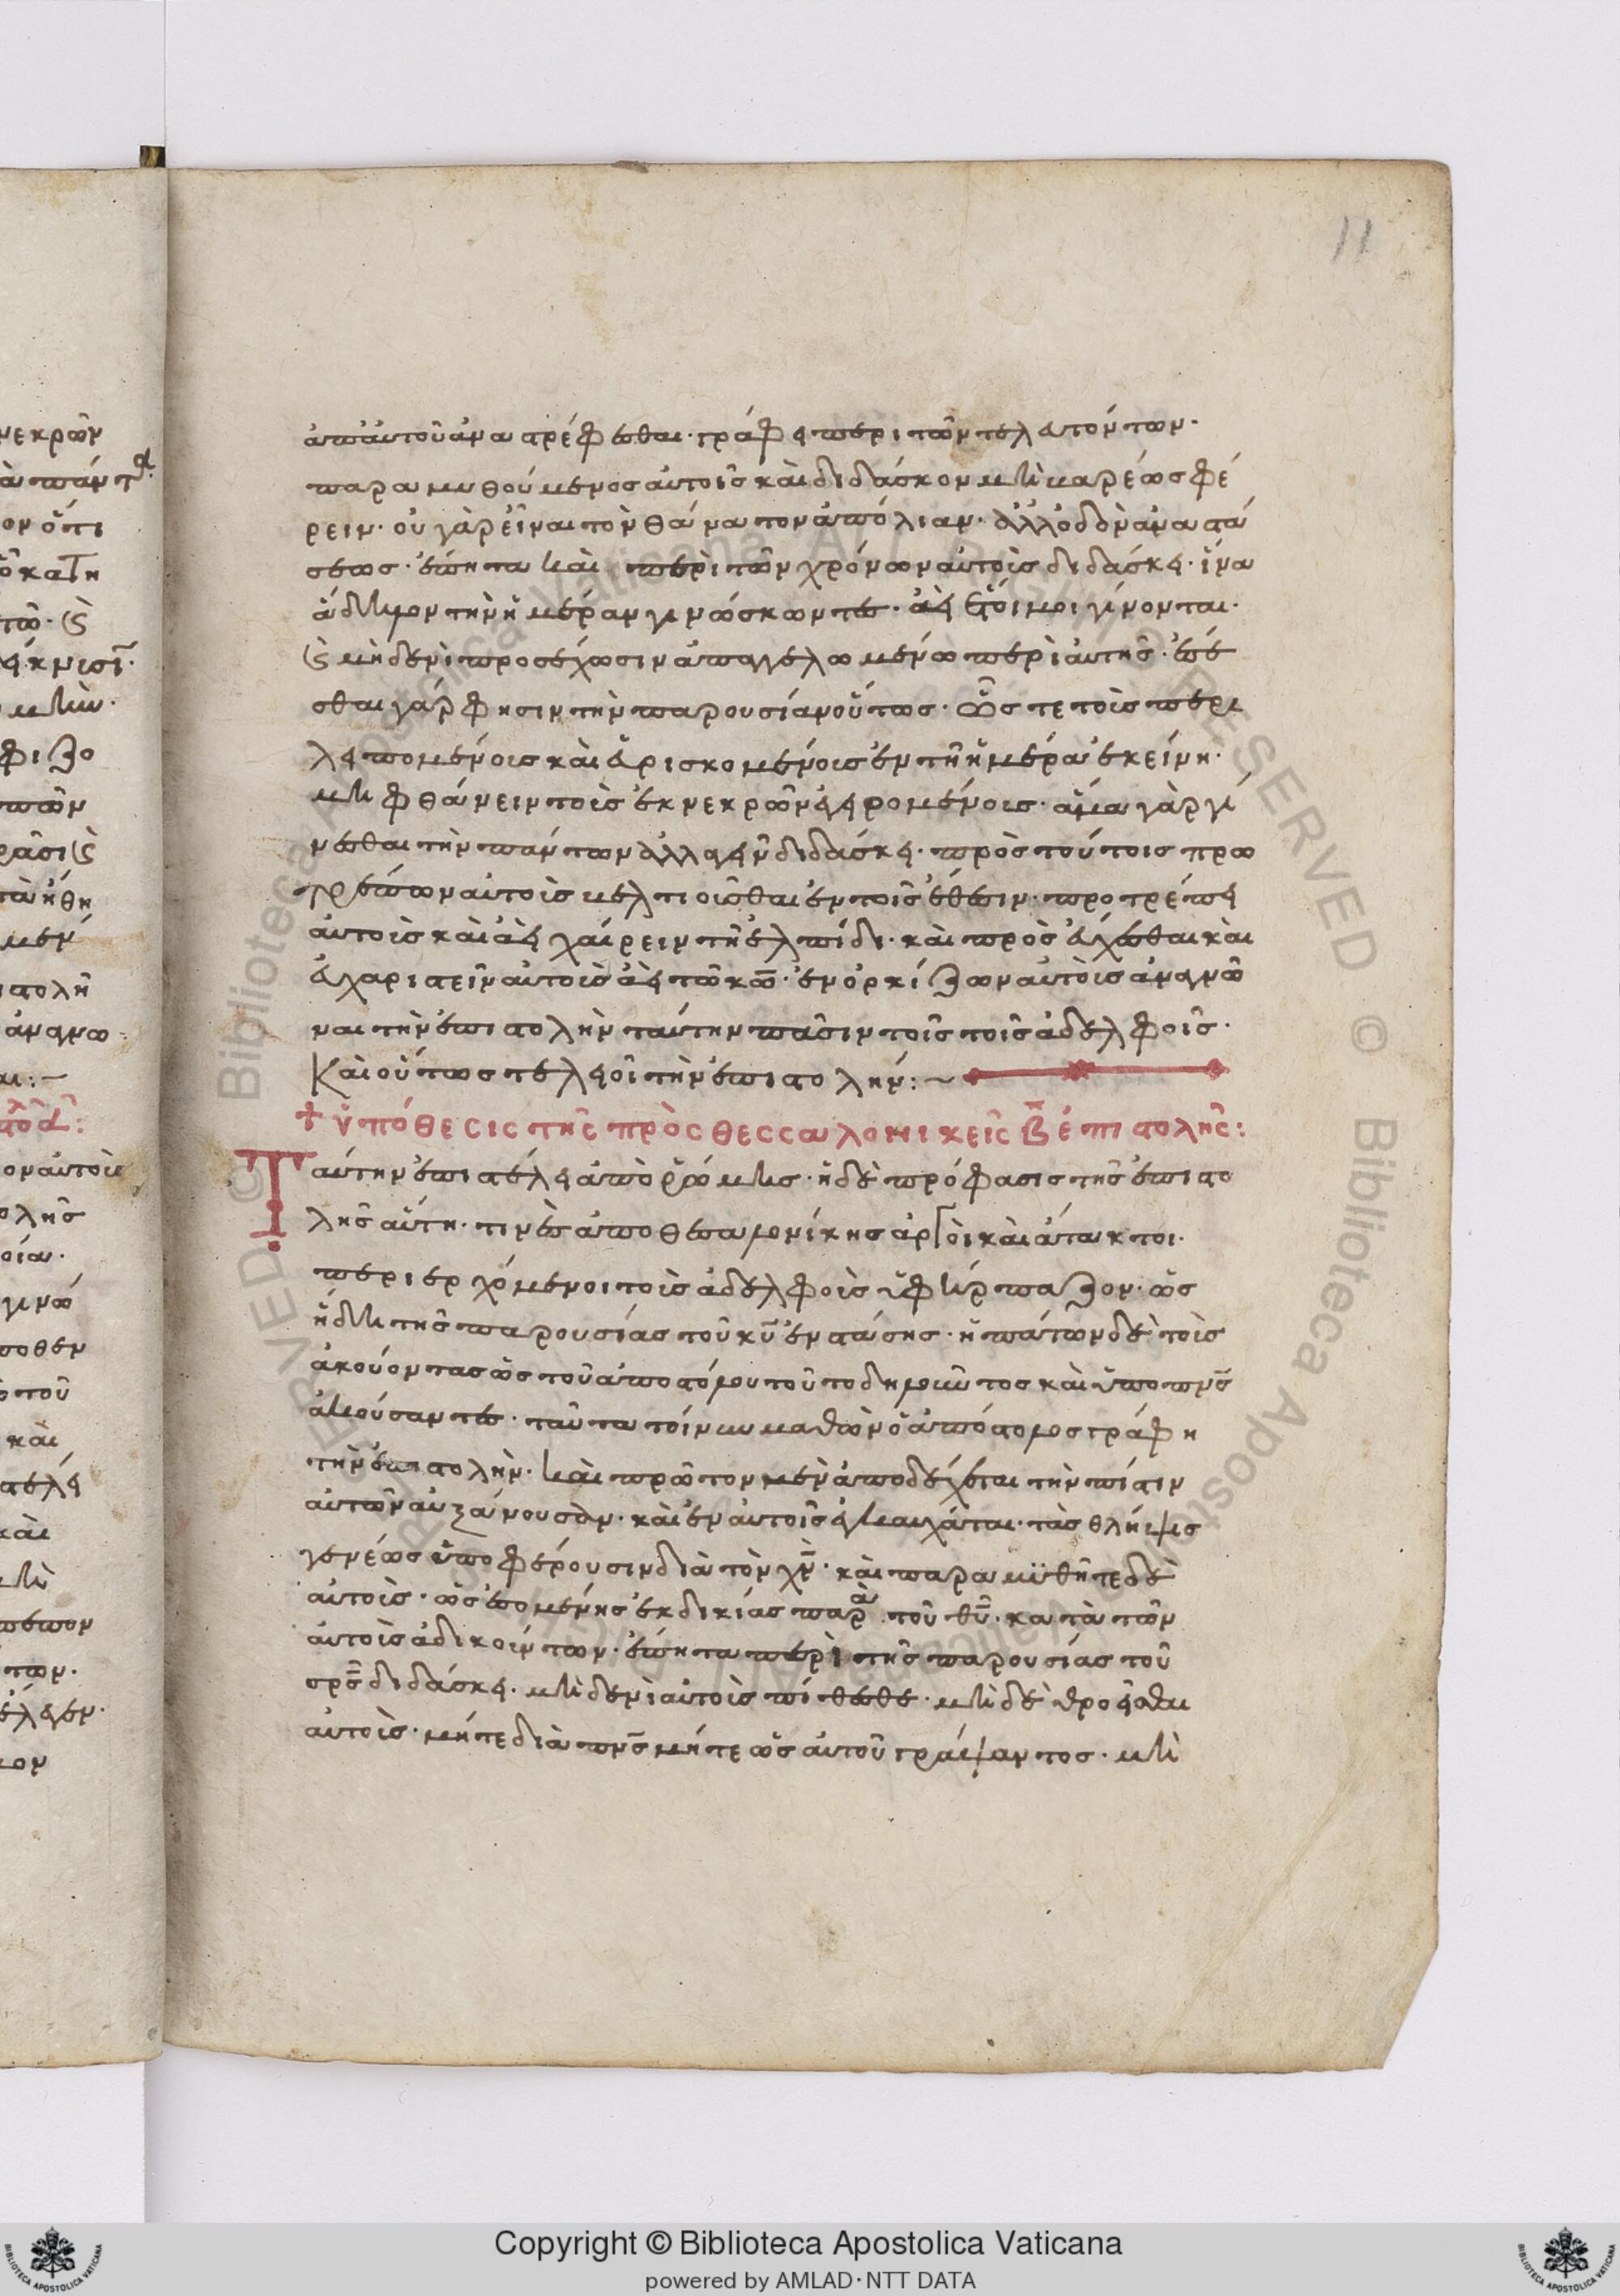 11
ἀπ' αὐτοῦ ἀναστρέφεσθαι· γράφει περὶ τῶν τελευτόντων·
παραμυθούμενος αὐτοῖς καὶ διδάσκον μὴ βαρέως φέ
ρειν· οὐ γὰρ εἶναι τὸν θάνατον ἀπόλιαν· ἀλλ' ὁδὸν ἀναστά
σεως· ἔπητα καὶ περὶ τῶν χρόνων αὐτοῖς διδάσκει· ἵνα
ἄδηλον τὴν ἡμέραν γινώσκωντες· ἀεὶ ἕτοιμοι γίνονται·
καὶ μηδενὶ προσέχωσιν ἀπαγγέλω μένω περὶ αὐτῆς· ἔσε
σθαι γάρ φησιν τὴν παρουσίαν οὕτως· ὥστε τοῖς περι
λειπομένοις καὶ εὑρισκομένοις ἐν τῆ ἡμέρα ἐκείνη·
μὴ φθάνειν τοῖς ἐκ νεκρῶν ἐγειρομένοις· ἅμα γὰρ γί
νεσθαι τὴν πάντων ἀλλαγεὶν διδάσκει· πρὸς τούτοις προ
τρέπων αὐτοῖς βελτιοῖσθαι ἐν τοῖς ἔθεσιν· προτρέπει
αὐτοῖς καὶ ἀεὶ χαίρειν τῆ ἐλπίδι· καὶ προσεύχεσθαι καὶ
εὐχαριστεῖν αὐτοῖς ἀεὶ τῶ κω· ἐνορκίζων αὐτοῖς ἀναγνῶ
ναι τὴν ἐπιστολὴν ταύτην πᾶσιν τοῖς τοῖς ἀδελφοῖς·
Καὶ οὕτως τελειοῖ τὴν ἐπιστολήν:~
+ ὑπόθεσις τῆς πρὸς θεσσαλονικεῖς β ἐπιστολῆς:
Ταύτην ἐπιστέλει ἀπὸ ῥώμης· ἡ δὲ πρόφασις τῆς ἐπιστο
λῆς αὕτη· τινὲς ἀπὸ θεσαλονίκης ἀργοὶ καὶ ἄτακτοι·
περιερχόμενοι τοῖς ἀδελφοῖς ὑφήρπαζον· ὡς
ἤδη τῆς παρουσίας τοῦ κυ ἐνστάσης· ἠπάτων δὲ τοῖς
ἀκούοντας ὡς τοῦ ἀποστόλου τοῦτο δηλοῦντος καὶ ὑπὸ πνς
ἀκούσαντες· ταῦτα τοίνυν μαθὼν ὁ ἀπόστολος γράφη
τὴν ἐπιστολὴν· καὶ πρῶτον μὲν ἀποδέχεται τὴν πίστιν
αὐτῶν αὐξάνουσαν· καὶ ἐν αὐτοῖς ἐγκαυχάται· τὰς θλήψις
γενέως ὑποφέρουσιν διὰ τὸν χν· καὶ παραμυθῆτε δὲ
αὐτοῖς· ὡς ἐπομένης ἐκδικίας παρὰ τοῦ θυ· κατὰ τῶν
αὐτοῖς ἀδικοίντων· ἔπητα περὶ τῆς παρουσίας τοῦ
σρς διδάσκει· μὴ δενὶ αὐτοῖς πίθεσθε· μὴ δὲ θροεῖσθαι
αὐτοῖς· μήτε διὰ πνς μήτε ὡς αὐτοῦ γράψαντος· μὴ
Copyright © Biblioteca Apostolica Vaticana
powered by AMLAD·NTT DATA